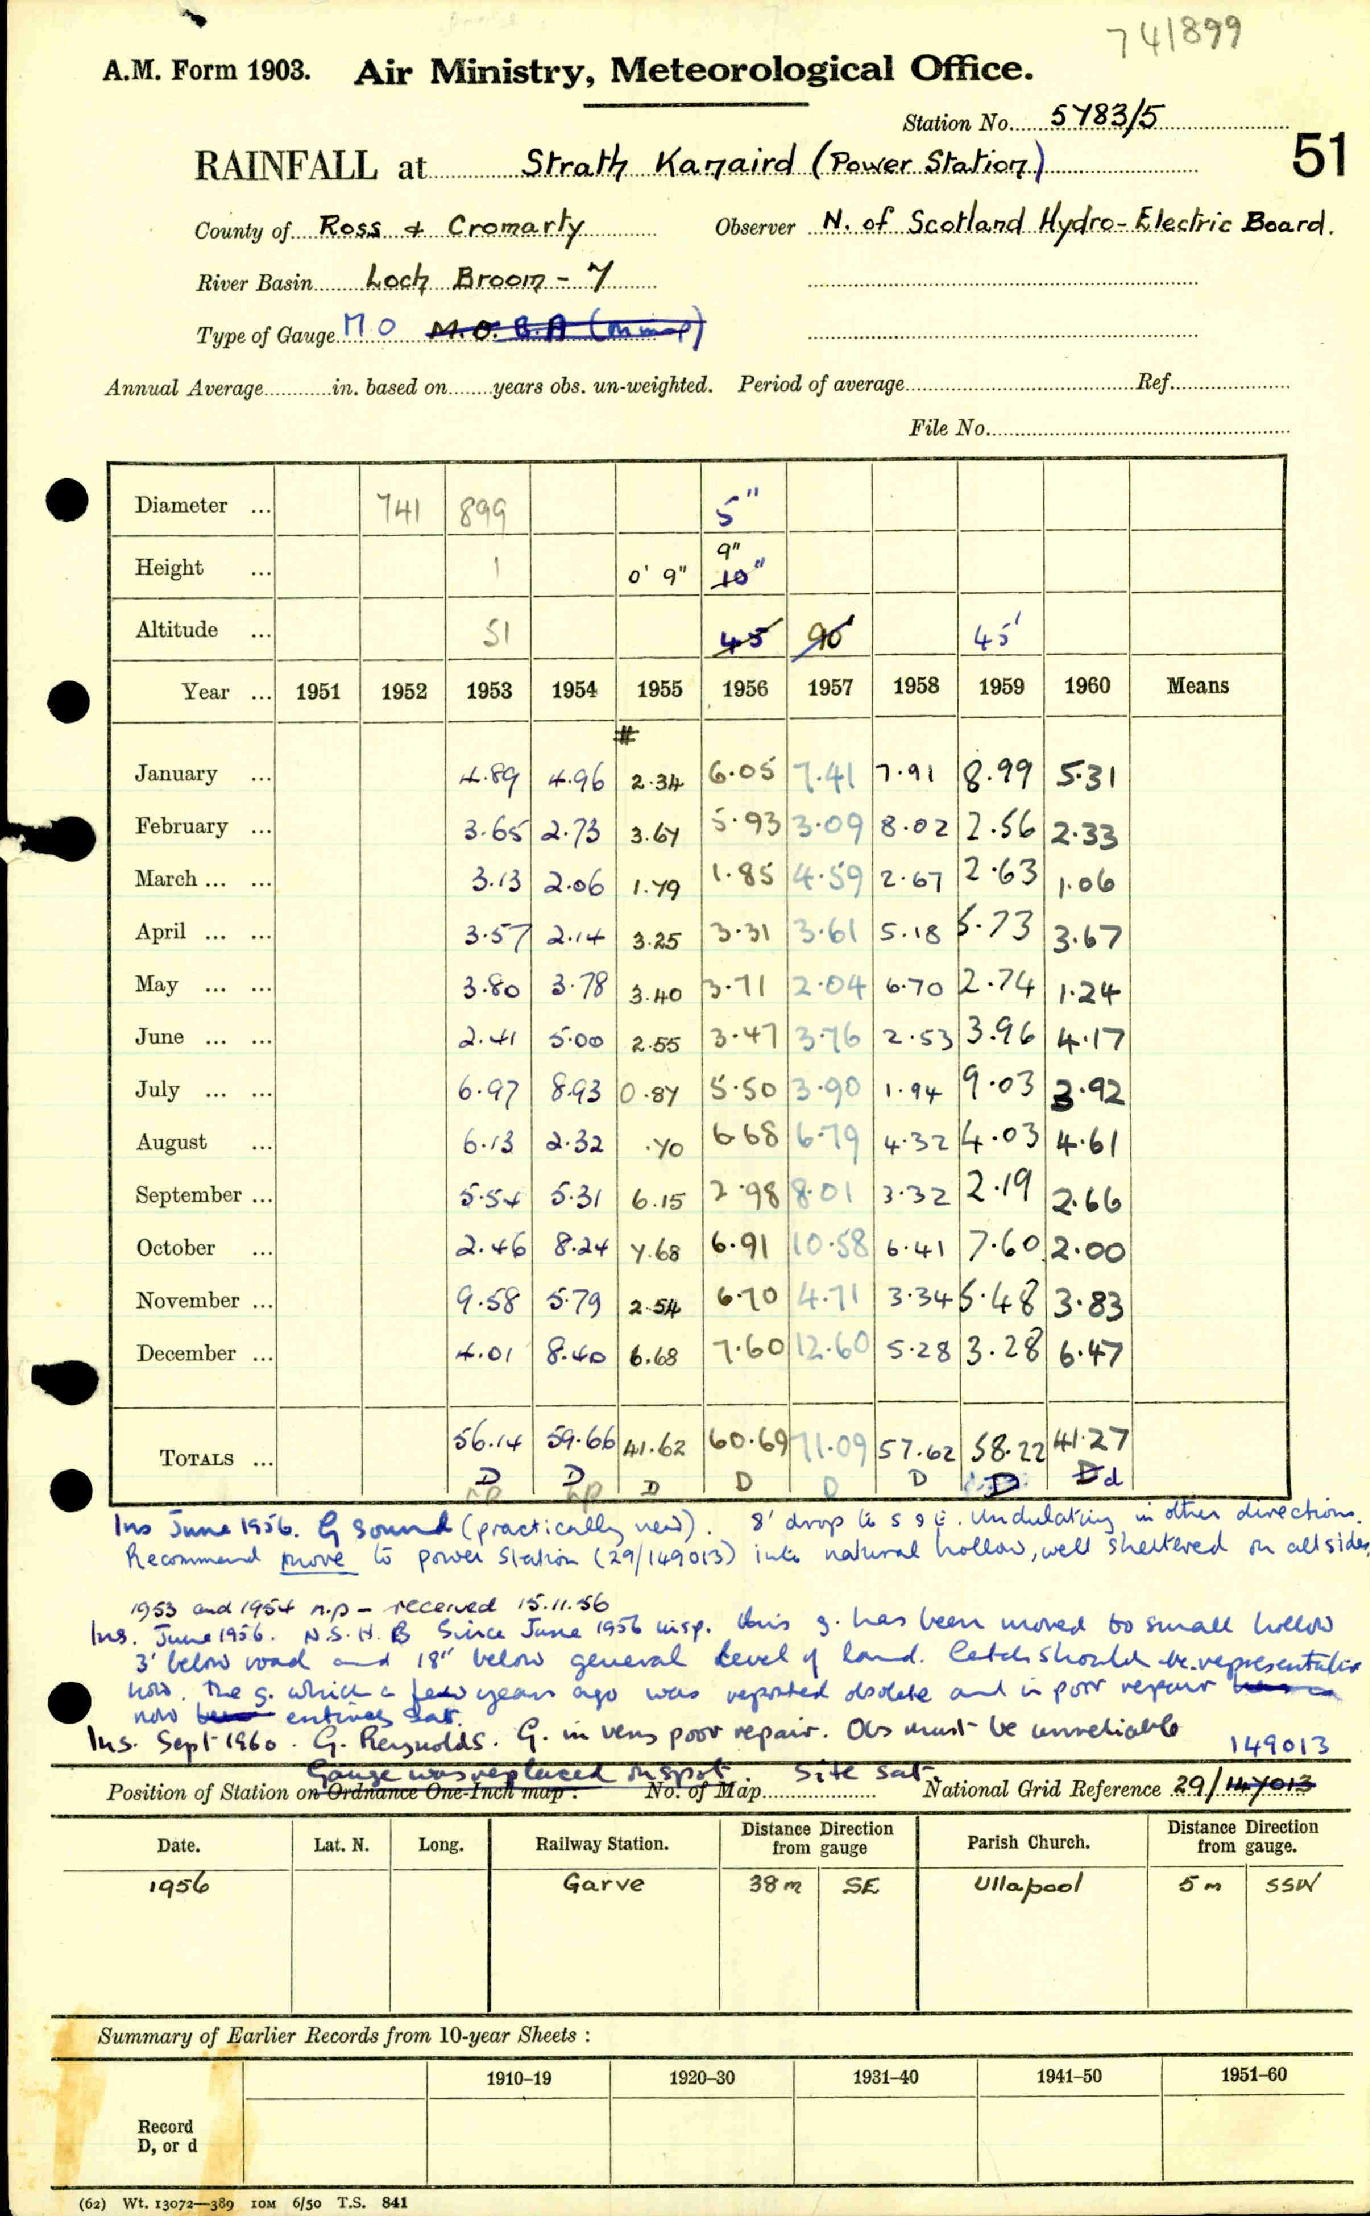 741899
A.M. Form 1903. Air Ministry, Meteorological Office.
Station No. 5783/5
51
RAINFALL at Strath Kanaird (Power Station)
County of Ross & Cromarty Observer N. of Scotland Hydro-Electric Board.
River Basin Loch Broom - 7
Type of Gauge M O M.O. B.A (on map)
Annual Average in. based on years obs. un-weighted. Period of average Ref.
File No.
Diameter ... 741 899 5"
9"
Height ... 1 0' 9" 10"
Altitude ... 51 45 90' 45'
Year ... 1951 1952 1953 1954 1955 1956 1957 1958 1959 1960 Means
#
January ... 4.89 4.96 2.34 6.05 7.41 7.91 8.99 5.31
February ... 3.65 2.73 3.67 5.93 3.09 8.02 2.56 2.33
March ... ... 3.13 2.06 1.79 1.85 4.59 2.67 2.63 1.06
April ... ... 3.57 2.14 3.25 3.31 3.61 5.18 5.73 3.67
May ... ... 3.80 3.78 3.40 3.71 2.04 6.70 2.74 1.24
June ... ... 2.41 5.00 2.55 3.47 3.76 2.53 3.96 4.17
July ... ... 6.97 8.93 0.87 5.50 3.90 1.94 9.03 3.92
August ... 6.13 2.32 .70 6.68 6.79 4.32 4.03 4.61
September ... 5.54 5.31 6.15 2.98 8.01 3.32 2.19 2.66
October ... 2.46 8.24 7.68 6.91 10.58 6.41 7.60 2.00
November ... 9.58 5.79 2.54 6.70 4.71 3.34 5.48 3.83
December ... 4.01 8.40 6.68 7.60 12.60 5.28 3.28 6.47
TOTALS ... 56.14 59.66 41.62 60.69 71.09 57.62 58.22 41.27
D D D D D D D D d
np np
Ins June 1956. G sound (practically new). 8' drop to S & E. Undulating in other directions.
Recommend move to power station (29/149013) into natural hollow, well sheltered on all sides
1953 and 1954 n.p - received 15.11.56
Ins. June 1956. N.S.H.B Since June 1956 insp. this g. has been moved to small hollow
3' below road and 18" below general level of land. Catch should be representative
now. The g. which a few years ago was reported obsolete and in poor repair
now entirely sat.
Ins. Sept 1960. G. Reynolds. G. in very poor repair. Obs must be unreliable
149013
Gauge was replaced on spot. Site sat.
Position of Station on Ordnance One-Inch map : No. of Map National Grid Reference 29/147013
Date. Lat. N. Long. Railway Station. Distance from gauge Direction Parish Church. Distance from gauge. Direction
1956 Garve 38 m SE Ullapool 5 m SSW
Summary of Earlier Records from 10-year Sheets :
1910-19 1920-30 1931-40 1941-50 1951-60
Record
D, or d
(62) Wt. 13072—389 10M 6/50 T.S. 841